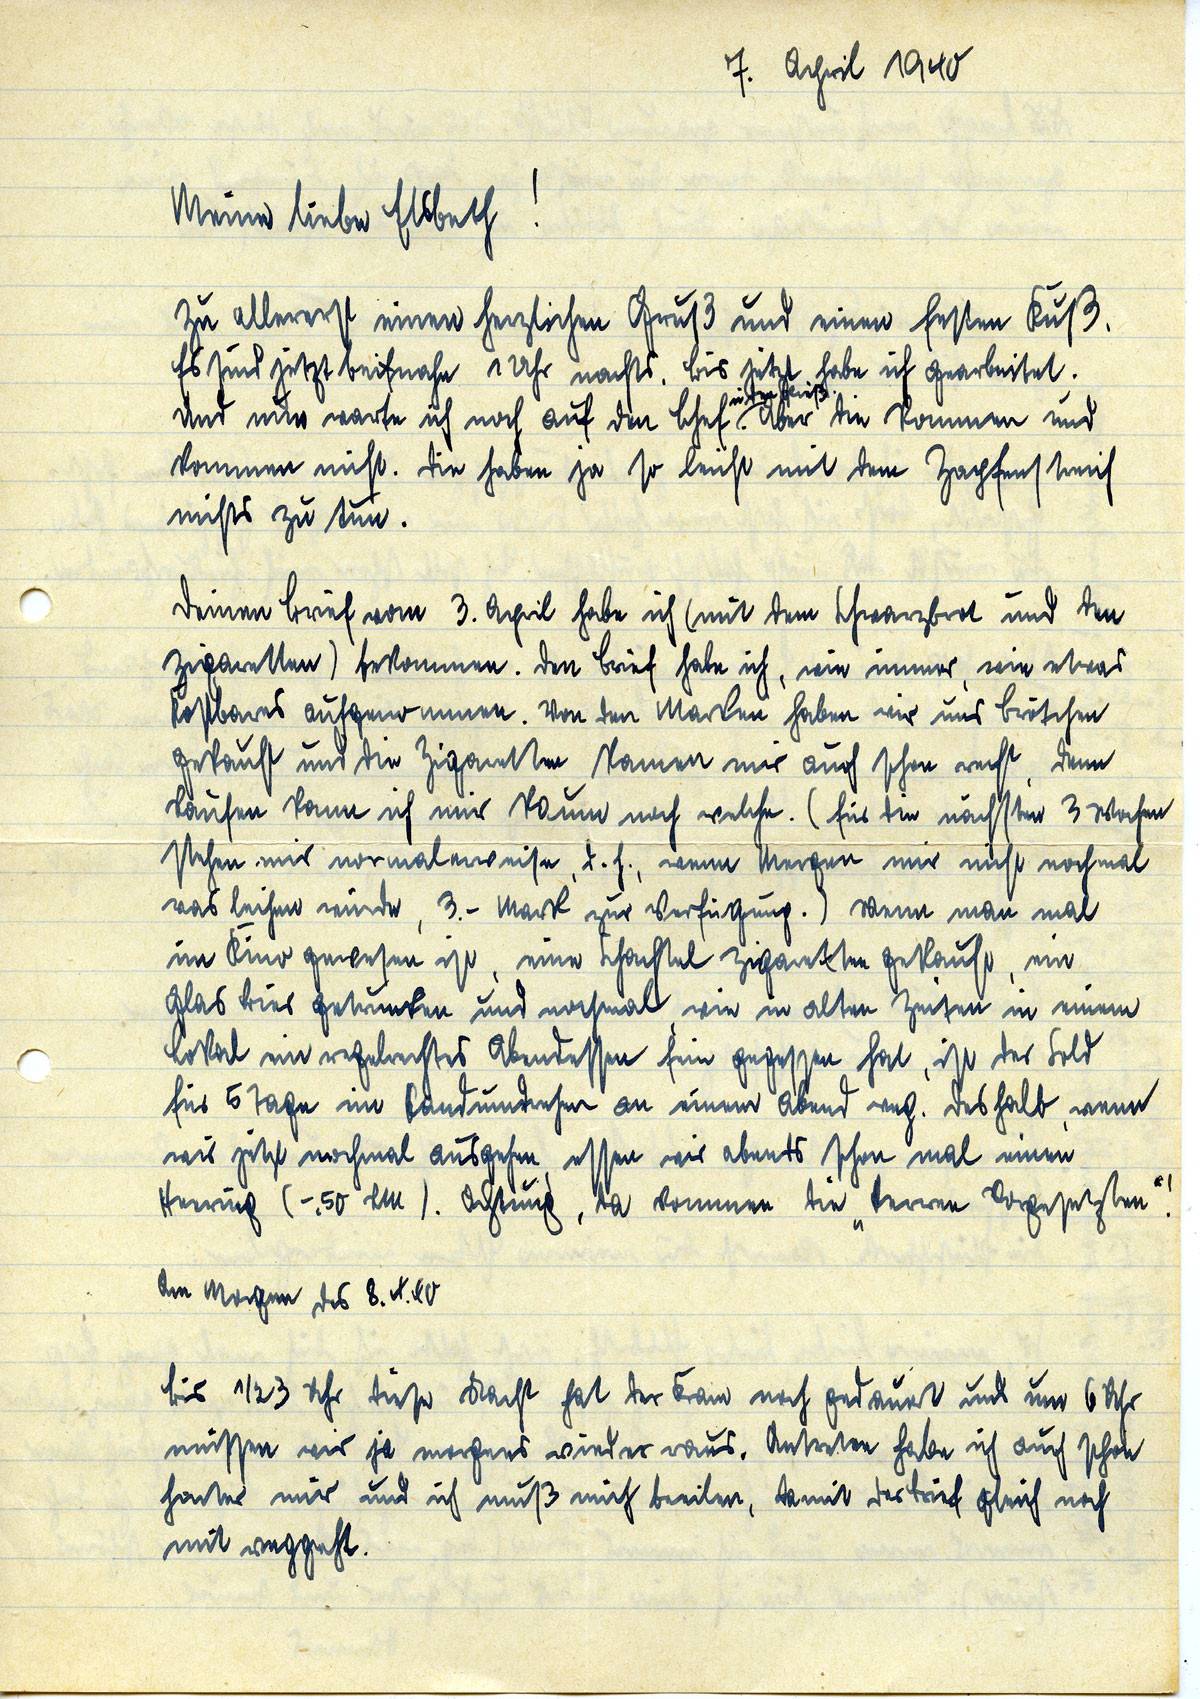 7. April 1940
Meine liebe Elsbeth!
Zu allererst einen herzlichen Gruß und einen festen Kuß.
Es sind jetzt beinahe 1 Uhr nachts. Bis jetzt habe ich gearbeitet.
Und nun warte ich noch auf den Chef. Aber die kommen und
kommen nicht. Die haben ja so leicht mit dem Zapfenstreich
nichts zu tun.
Deinen Brief vom 3. April habe ich (mit dem Schwarzbrot und den
Zigaretten) bekommen. Den Brief habe ich, wie immer, wie etwas
Kostbares aufgenommen. Von den Marken haben wir uns Brötchen
gekauft und die Zigaretten kamen mir auch schon recht, denn
kaufen kann ich mir kaum noch welche. (Für die nächsten 3 Wochen
stehen mir normalerweise, d.h., wenn Mergen mir nicht nochmal
was leihen würde, 3.- Mark zur Verfügung.) Wenn man mal
im Kino gewesen ist, eine Schachtel Zigaretten gekauft, ein
Glas Bier getrunken und nochmal, wie in alten Zeiten in einem
Lokal ein regelrechtes Abendessen fein gegessen hat, ist der Sold
für 5 Tage im Handumdrehen an einem Abend weg. Deshalb, wenn
wir jetzt nochmal ausgehen, essen wir abends schon mal einen
Heering (-.50 RM). Achtung, da kommen die „Herren Vorgesetzten“!
Am Morgen des 8.4.40
Bis 1/2 3 Uhr diese Nacht hat der Kram noch gedauert und um 6 Uhr
müssen wir ja morgens wieder raus. Antreten habe ich auch schon
hinter mir und ich muß mich beeilen, damit der Brief gleich noch
mit weggeht.